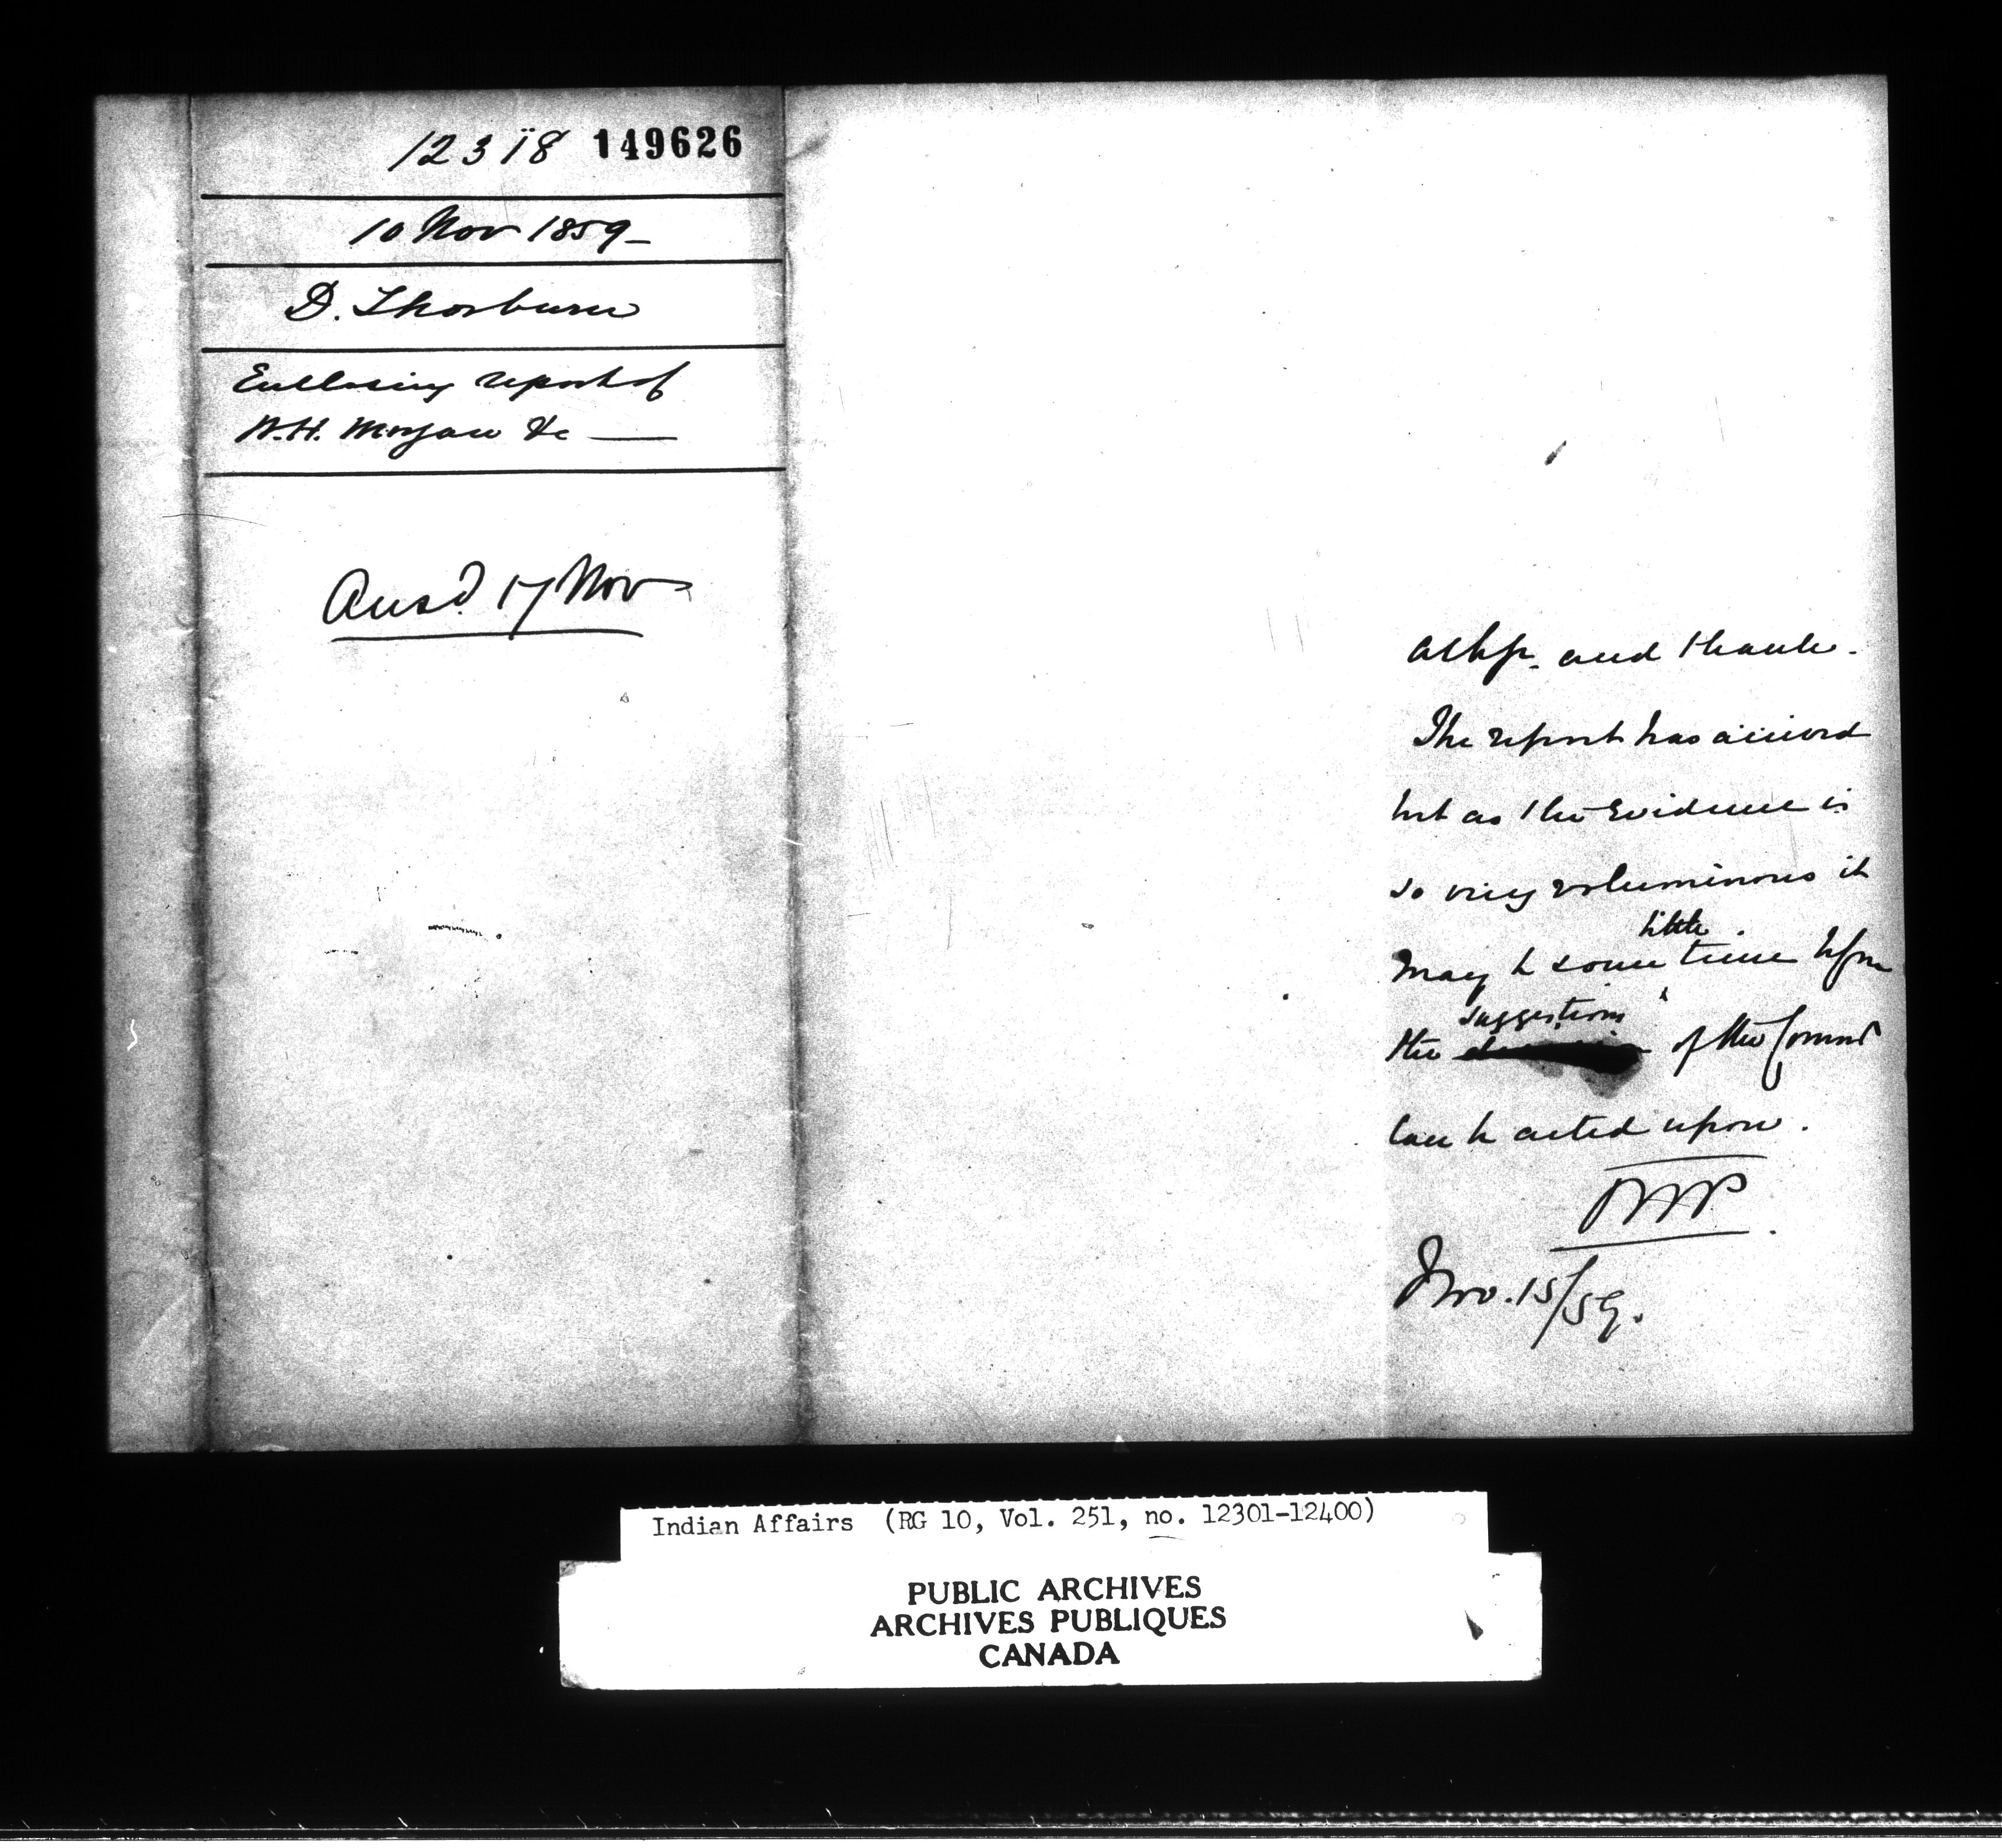 12318 149626
10 Nov 1859 —
D. Thorburn
Enclosing report of
W. H. Morgan &c —
Ansd. 17 Nov
Ackge. and thank.
The report has arrived
but as the evidence is
so very voluminous it
little
may be some time before
suggestions
the of the Commrs
can be acted upon.
Nov. 15/59.
Indian Affairs (RG 10, Vol. 251, no. 12301-12400)
PUBLIC ARCHIVES
ARCHIVES PUBLIQUES
CANADA